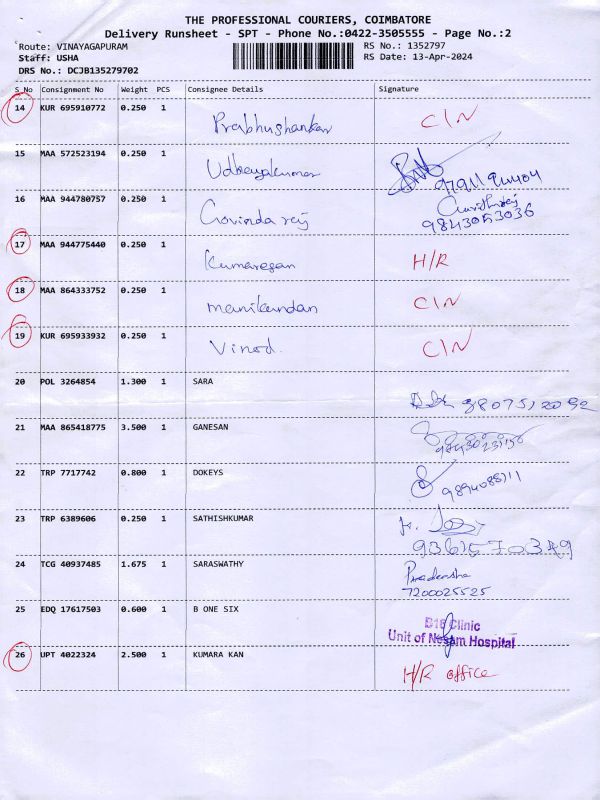 THE PROFESSIONAL COURIERS, COIMBATORE
Delivery Runsheet - SPT - Phone No.:0422-3505555 - Page No.:2
Route: VINAYAGAPURAM RS No.: 1352797
Staff: USHA RS Date: 13-Apr-2024
DRS No.: DCJB135279702
S_No Consignment No Weight PCS Consignee Details Signature
14 KUR 695910772 0.250 1 Prabhushankar C/N
15 MAA 572523194 0.250 1 Udhayakumar
16 MAA 944780757 0.250 1 Govindaraj 9843053036
17 MAA 944775440 0.250 1 Kumaresan H/R
18 MAA 864333752 0.250 1 manikandan C/N
19 KUR 695933932 0.250 1 Vinod. C/N
20 POL 3264854 1.300 1 SARA
21 MAA 865418775 3.500 1 GANESAN
22 TRP 7717742 0.800 1 DOKEYS
23 TRP 6389606 0.250 1 SATHISHKUMAR
24 TCG 40937485 1.675 1 SARASWATHY 7200025525
25 EDQ 17617503 0.600 1 B ONE SIX B16 Clinic
Unit of Nesam Hospital
26 UPT 4022324 2.500 1 KUMARA KAN H/R office